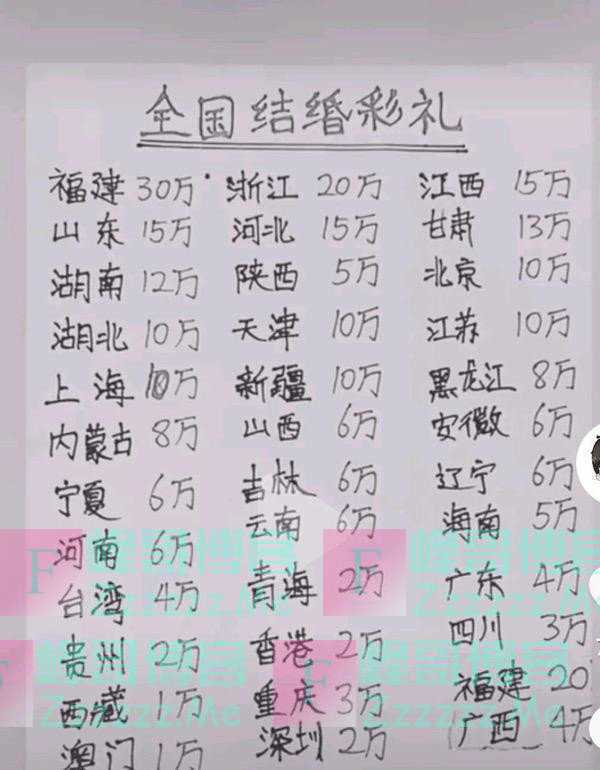 全国结婚彩礼
福建 30万 浙江 20万 江西 15万
山东 15万 河北 15万 甘肃 13万
湖南 12万 陕西 5万 北京 10万
湖北 10万 天津 10万 江苏 10万
上海 10万 新疆 10万 黑龙江 8万
内蒙古 8万 山西 6万 安徽 6万
宁夏 6万 吉林 6万 辽宁 6万
河南 6万 云南 6万 海南 5万
台湾 4万 青海 2万 广东 4万
贵州 2万 香港 2万 四川 3万
西藏 1万 重庆 3万 福建 20
澳门 1万 深圳 2万 广西 4万
F 峰哥博客 F 峰哥博客
Zzzzzz.Me Zzzzzz.Me
峰哥博客 F 峰哥博客
Zzzzzz.Me Zzzzzz.Me